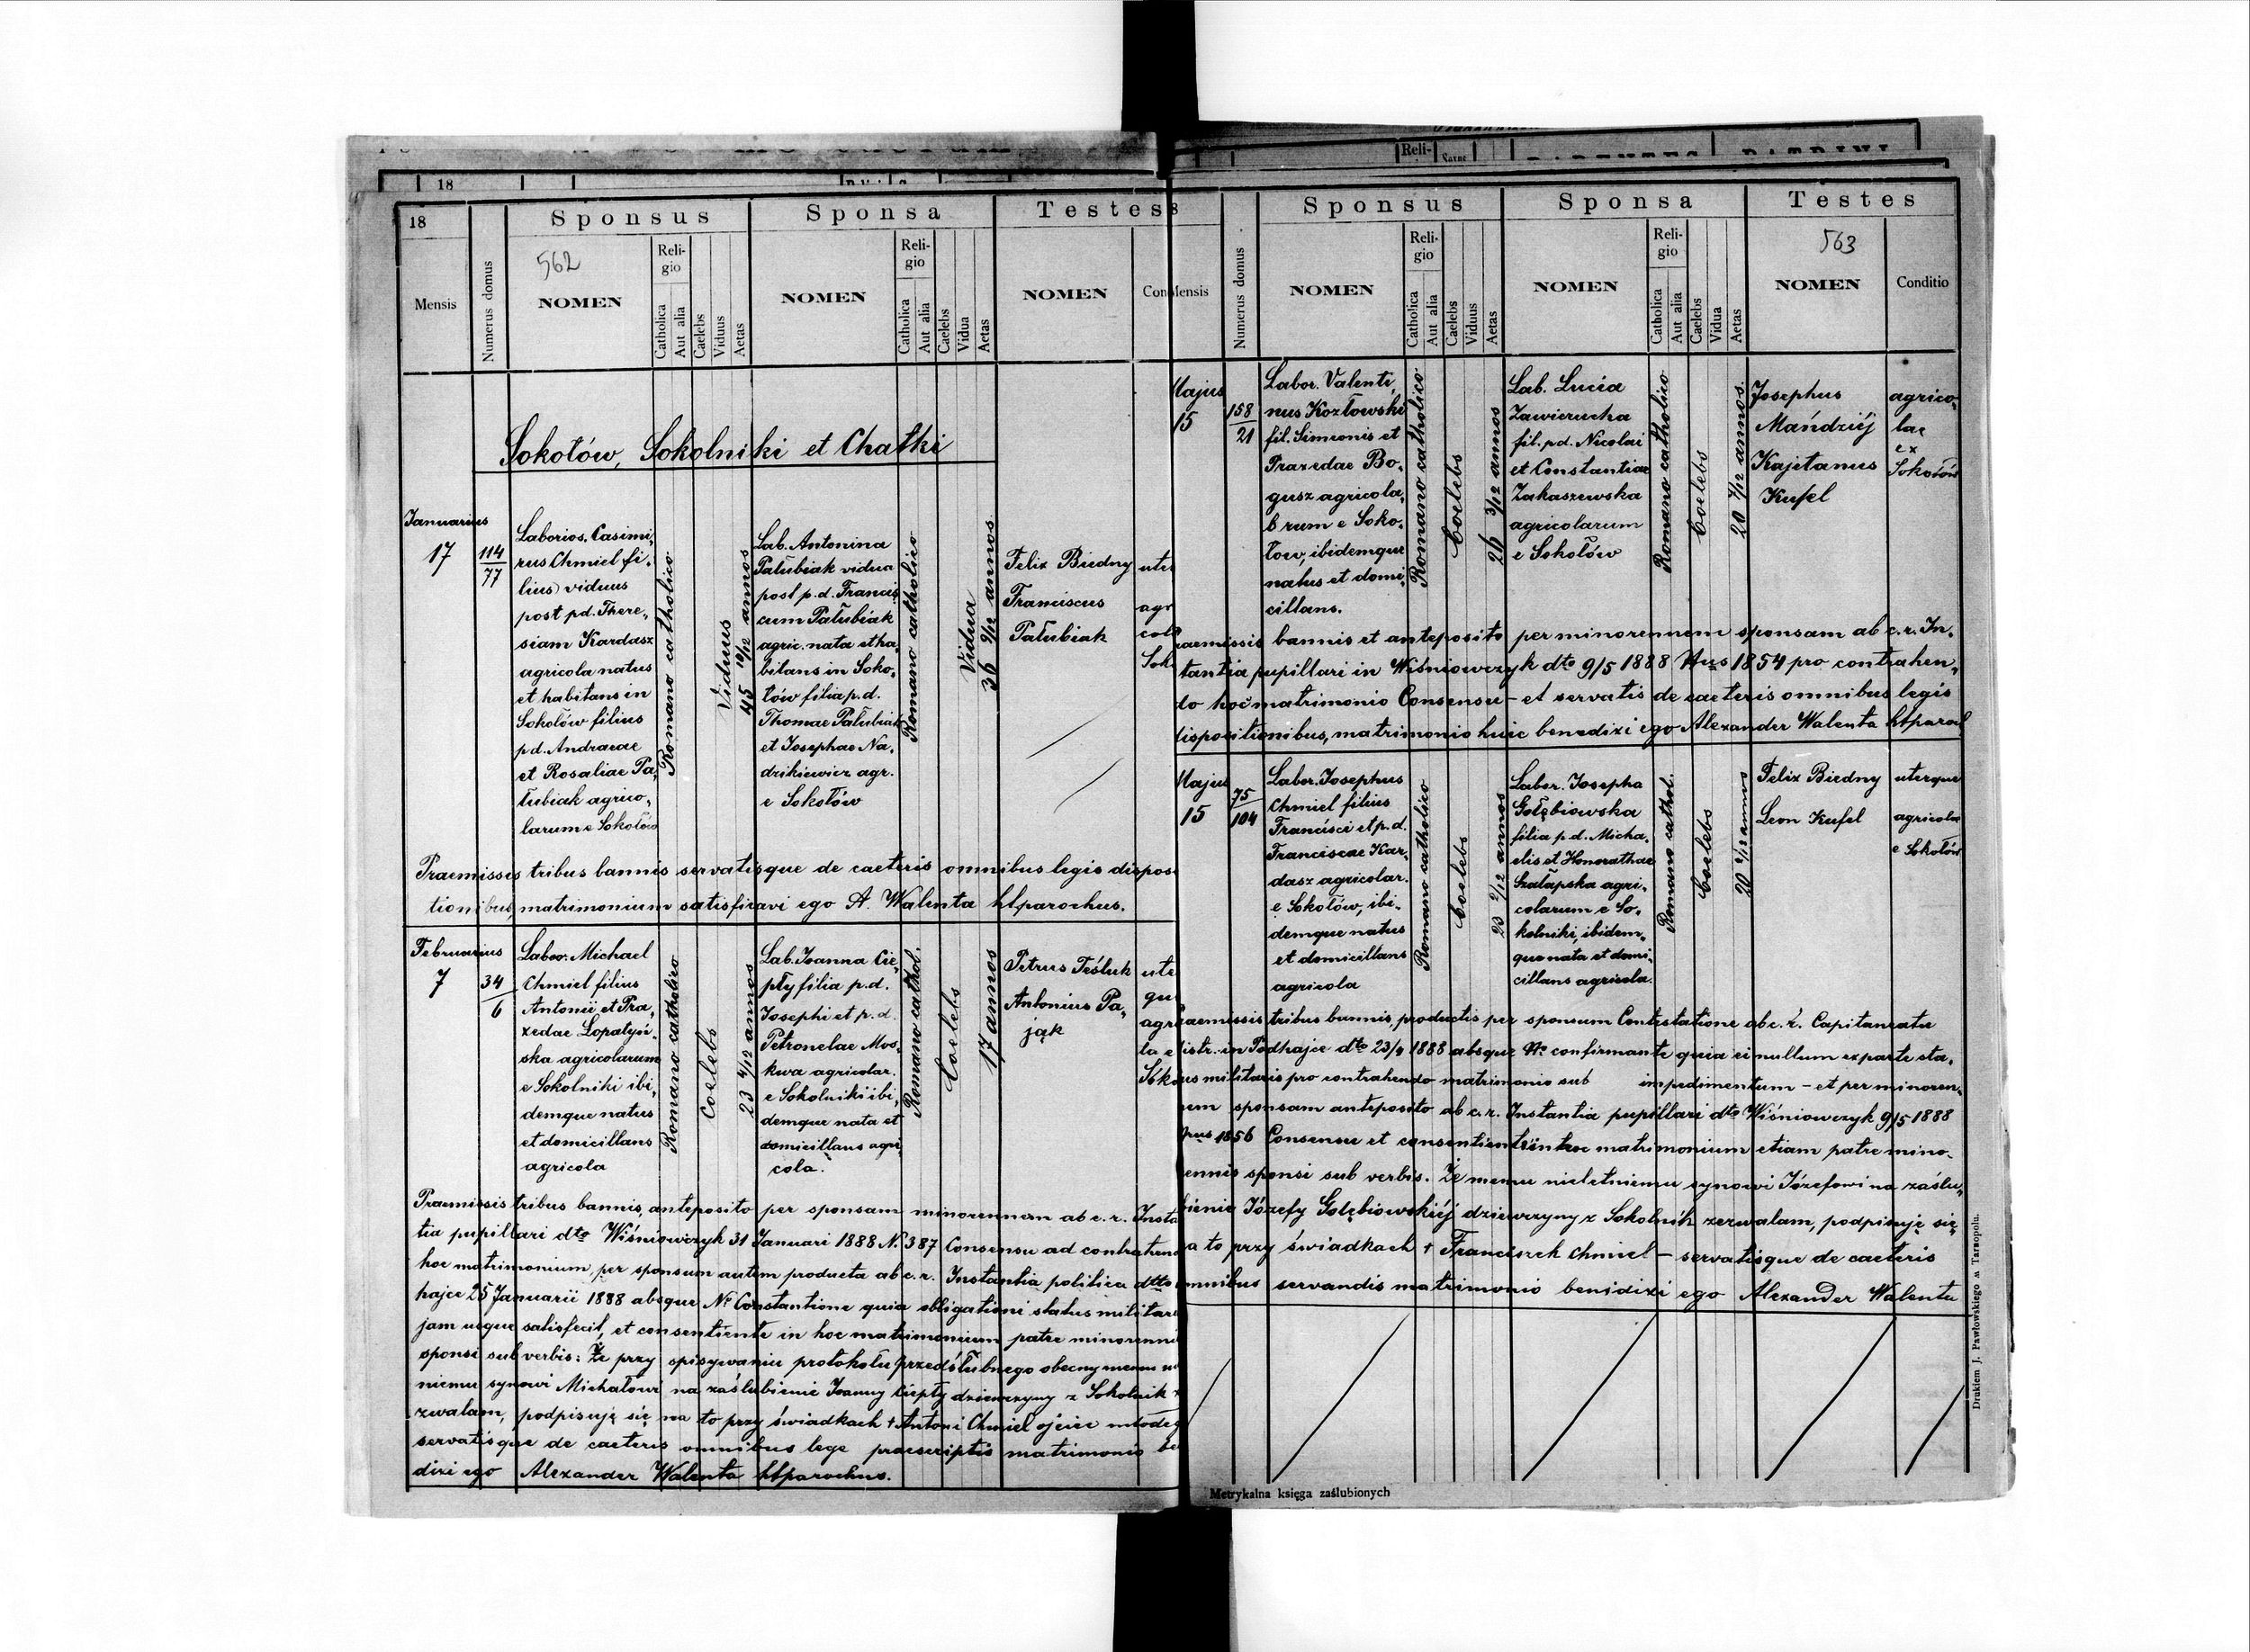 18
18
Sponsus
Sponsa
Testes
Mensis
Numerus domus
562
NOMEN
Religio
Catholica
Aut alia
Caelebs
Viduus
Aetas
NOMEN
Religio
Catholica
Aut alia
Caelebs
Vidua
Aetas
NOMEN
Con
Sokołów, Sokolniki et Chatki
Januarius
17
114
77
Laborios. Casimi,
rus Chmiel fi,
lius) viduus
post pd. There,
siam Kardasz
agricola natus
et habitans in
Sokołów filius
pd. Andraeae
et Rosaliae Pa,
łubiak agrico,
larum e Sokołów
Romano catholico
Viduus
45 10/12 annos
Lab. Antonina
Pałubiak vidua
post p.d. Francis
cum Pałubiak
agric. nata etha,
bitans in Soko,
łów filia p.d.
Thomae Pałubiak
et Josephae Na,
dzikiewicz agr.
e Sokołów
Romano catholico
Vidua
36 9/12 annos
Felix Biedny
Franciscus
Pałubiak
ute
agr
col
Sok
Praemissis tribus bannis servatisque de caeteris omnibus legis dispos
tionibus, matrimonium satisfixavi ego A. Walenta htparochus.
Februarius
7
34
6
Labor. Michael
Chmiel filius
Antonii et Pra,
xedae Lopatyń,
ska agricolarum
e Sokolniki ibi,
demque natus
et domicillans
agricola
Romano catholico
Coelebs
23 4/12 annos
Lab. Joanna Cie,
pły filia p.d.
Josephi et p.d.
Petronelae Mos,
kwa agricolar.
e Sokolniki ibi,
demque nata et
domicillans agri,
cola.
Romano cathol.
Coelebs
17 annos
Petrus Teśluk
Antonius Pa,
jąk
ute
qu
agr
la e
Sok
Praemissis tribus bannis, anteposito per sponsam minorennem ab c.r. Insta
tia pupillari dto Wiśniowczyk 31 Januari 1888 N. 387 Consensu ad contrahend
hoc matrimonium, per sponsum autem producta ab c.r. Instantia politica dtto
hajce 25 Januarii 1888 absque No Constantione quia obligationi status militare
jam usque satisfecit, et consentiente in hoc matrimonium patre minorenni
sponsi sub verbis: Że przy spisywaniu protokołu przedślubnego obecny memu
niemu synowi Michałowi na zaślubienie Joanny Ciepły dziewczyny z Sokolnik
zwalam, podpisuję się na to przy świadkach + Antoni Chmiel ojciec młodeg
servatisque de caeteris omnibus lege praescriptis matrimonio be
dixi ego Alexander Walenta htparochus.
Mensis
Numerus domus
Sponsus
Sponsa
Testes
NOMEN
Religio
Catholica
Aut alia
Caelebs
Viduus
Aetas
NOMEN
Religio
Catholica
Aut alia
Caelebs
Vidua
Aetas
563
NOMEN
Conditio
Majus
15
158
21
Labor. Valenti,
nus Kozłowski
fil. Simeonis et
Praxedae Bo,
gusz agricola,
rum e Soko,
łow, ibidemque
natus et domi,
cillans.
Romano catholico
Coelebs
26 3/12 annos
Lab. Lucia
Zawierucha
fil. pd. Nicolai
et Constantiae
Zakaszewska
agricolarum
e Sokołów
Romano catholico
Coelebs
20 7/12 annos.
Josephus
Mańdziéj
Kajetanus
Kufel
agrico,
lae
ex
Sokołów
raemissis bannis et anteposito per minorennem sponsam ab c.r. In,
tantia pupillari in Wiśniowczyk dto 9/5 1888 Nus 1854 pro contrahen,
do hoc matrimonio Consensu - et servatis de caeteris omnibus legis
dispositionibus, matrimonio huic benedixi ego Alexander Walenta htparoch
Majus
15
75
104
Labor. Josephus
Chmiel filius
Francisci et p.d.
Franciscae Kar,
dasz agricolar.
e Sokołów, ibi,
demque natus
et domicillans
agricola
Romano catholico
Coelebs
23 2/12 annos
Labor. Josepha
Gołębiowska
filia p.d. Micha,
elis et Honorathae
Szałapska agri,
colarum e So,
kolniki, ibidem,
que nata et domi,
cillans agricola.
Romano cathol.
Coelebs
20 2/12 annos
Felix Biedny
Leon Kufel
uterque
agricola
e Sokołów
raemissis tribus bannis, productis per sponsum Contestatione ab c.r. Capitaneatu
istr. in Podhajce dto 23/4 1888 absque No confirmante quia ei nullum ex parte sta,
us militaris pro contrahendo matrimonio sub impedimentum - et per minoren,
nem sponsam anteposito ab c.r. Instantia pupillari dto Wiśniowczyk 9/5 1888
Nus 1856 Consensu et consentiente in hoc matrimonium etiam patre mino,
ennis sponsi sub verbis. Że memu nieletniemu synowi Józefowi na zaślu,
bienie Józefy Gołębiowskiéj dziewczyny z Sokolnik zezwalam, podpisuję się
a to przy świadkach + Franciszek Chmiel - servatisque de caeteris
omnibus servandis matrimonio benidixi ego Alexander Walenta
Metrykalna księga zaślubionych
Drukiem J. Pawłowskiego w Tarnopolu.